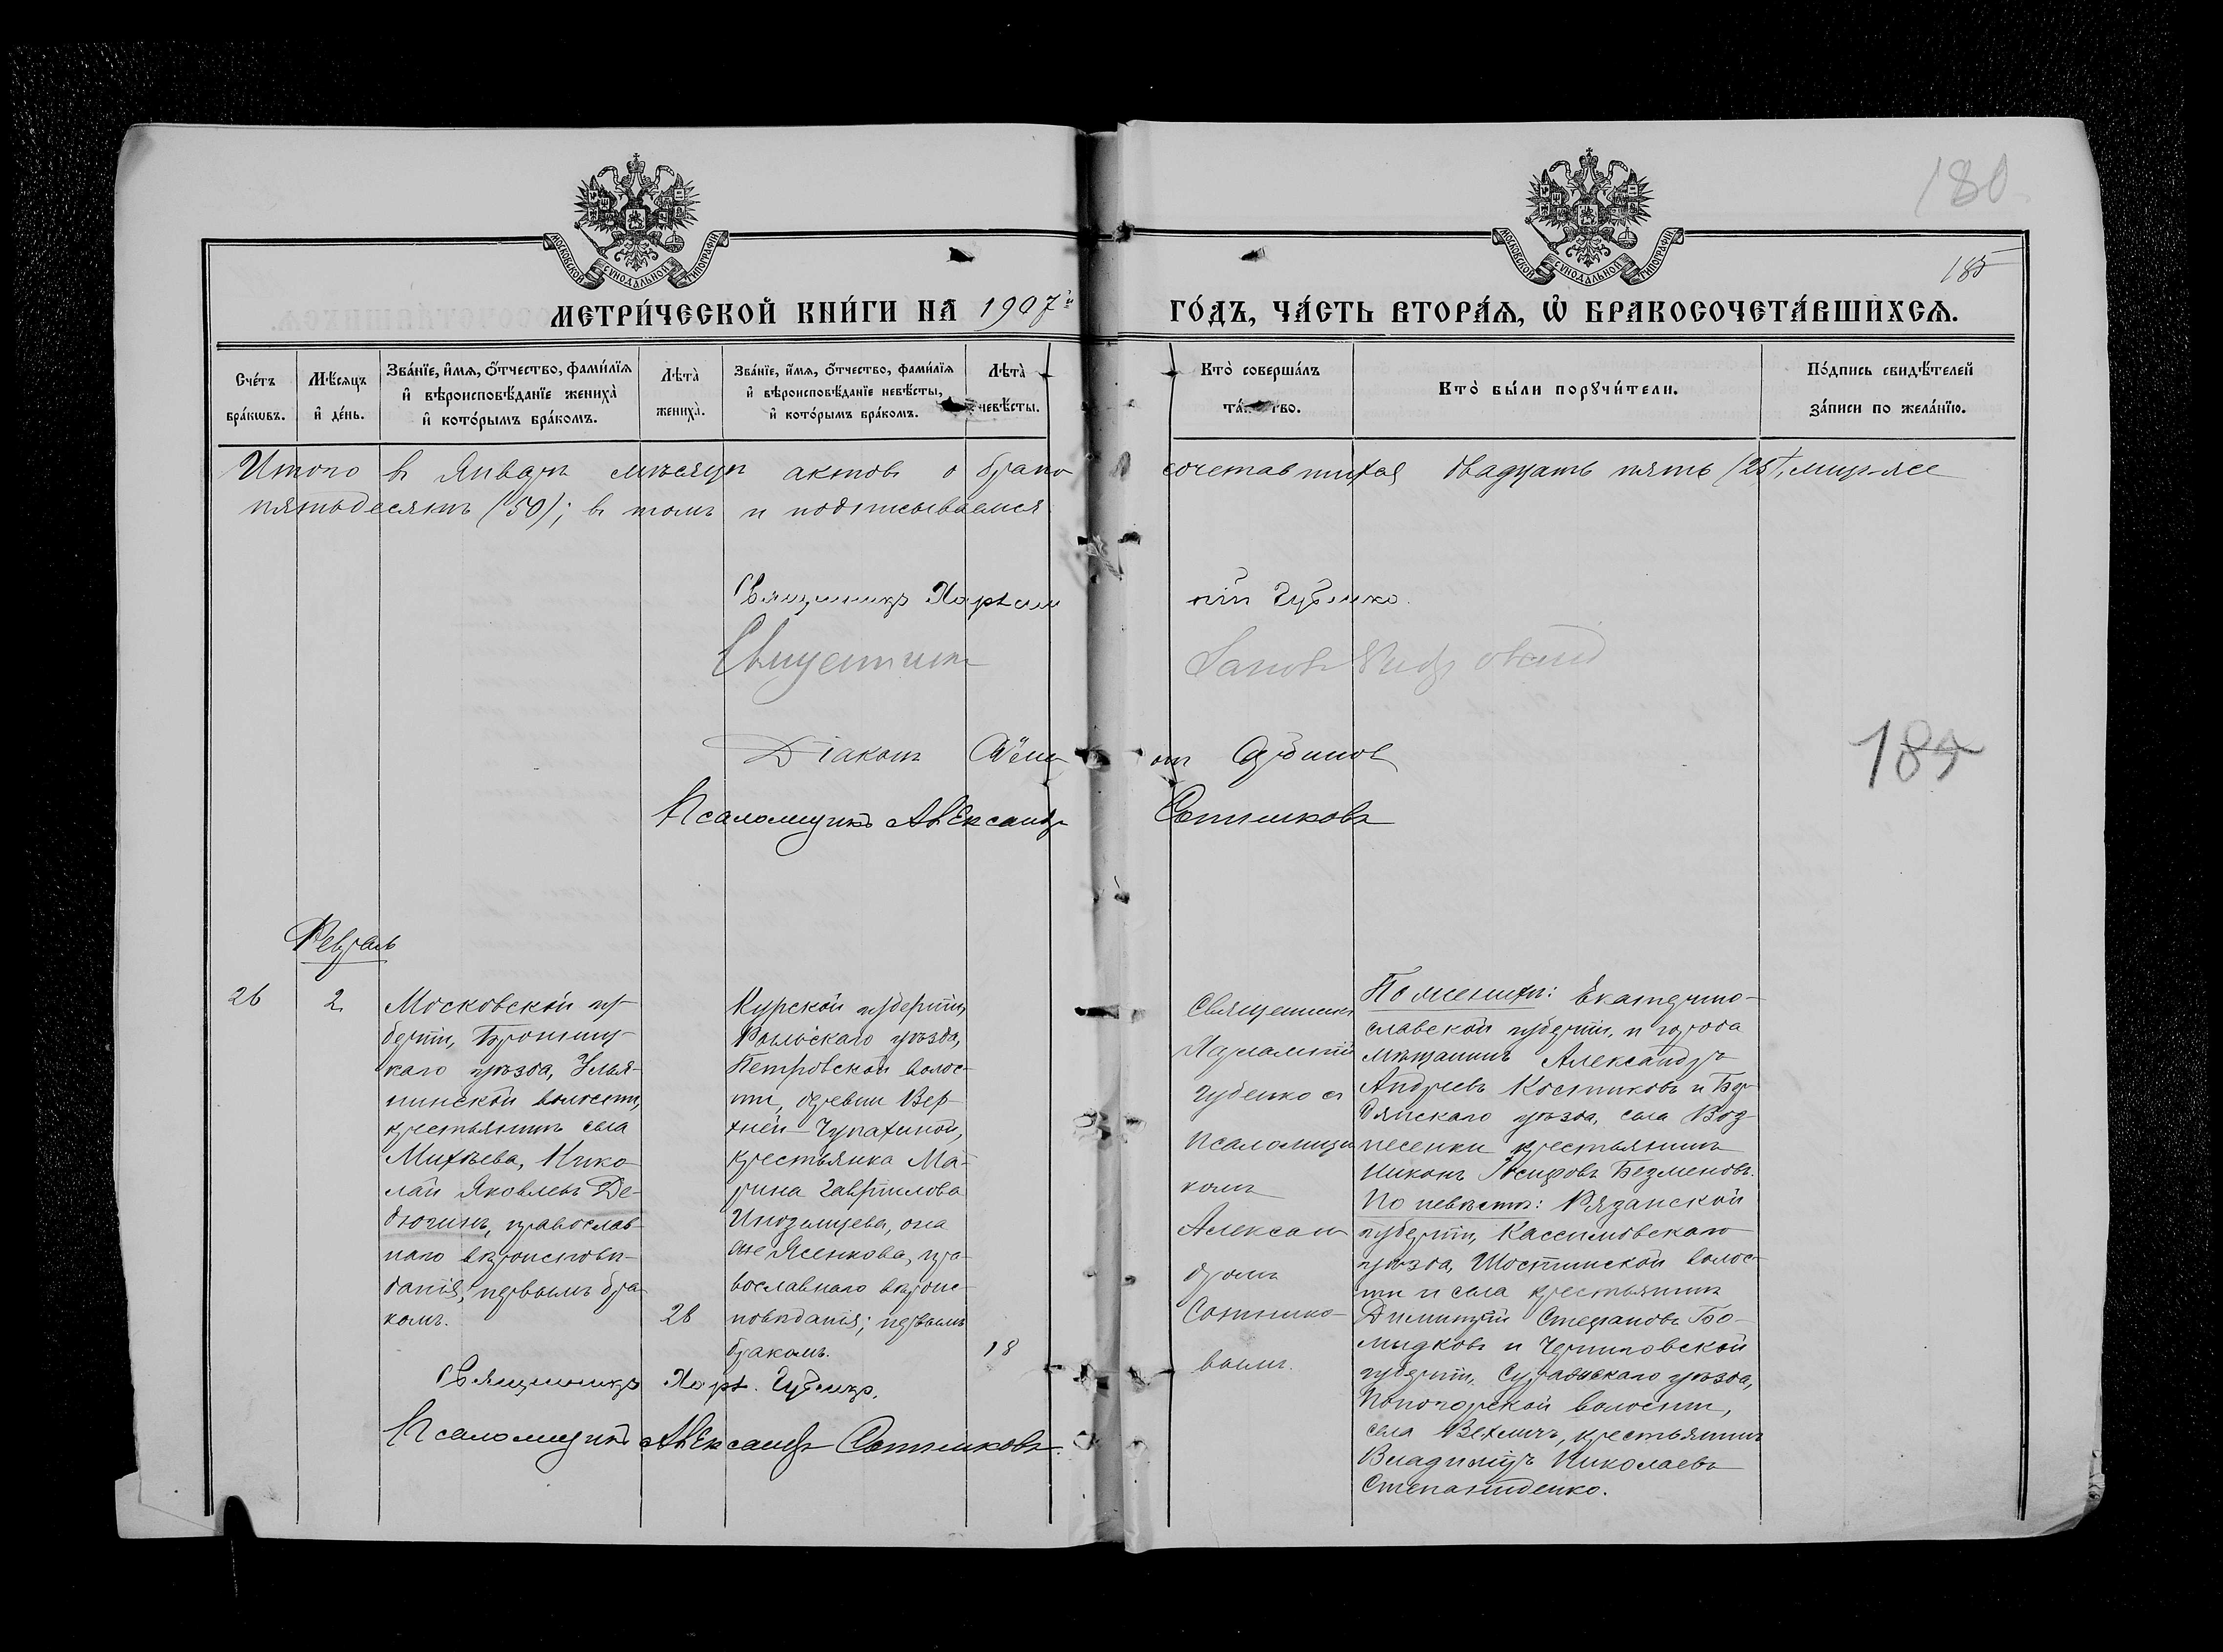 180
185
МОСКОВСКОЙ СУНОДАЛЬНОЙ ТИПОГРАФІИ
МОСКОВСКОЙ СУНОДАЛЬНОЙ ТИПОГРАФІИ
МЕТРИ́ЧЕСКОЙ КНИ́ГИ НА 1907й ГО́ДЪ, ЧА́СТЬ ВТОРА́Я, Ѡ БРАКОСОЧЕТА́ВШИХСЯ.
Сче́тъ бра́кѡвъ.
Мѣ́сяцъ и де́нь.
Зва́нїе, и́мя, ѻ́тчество, фами́лїя
и вѣроисповѣ́данїе жениха̀
и кото́рымъ бра́комъ.
Лѣта̀ жениха̀.
Зва́нїе, и́мя, ѻ́тчество, фами́лїя
и вѣроисповѣ́данїе невѣ́сты,
и кото́рымъ бра́комъ.
Лѣта̀ невѣ́сты.
Кто̀ соверша́лъ
Кто̀ бы́ли порꙋчи́тели.
По́дпись свидѣ́телей
за́писи по жела́нїю.
Итого въ Январѣ мѣсяцѣ актовъ о брако сочетавшихся двадцать пять (25),
пятьдесятъ (50); въ томъ и подписываемся
Священникъ Харлампій Губенко.
Священникъ Іаковъ
Діаконъ
185
Псаломщикъ Александръ Сотниковъ
Февраль
26
2
Московской гу-
берніи, Бронниц-
каго уѣзда, Улья-
нинской волости,
крестьянинъ села
Михѣева, Нико-
лай Яковлевъ Де-
дюгинъ, православ-
наго вѣроисповѣ-
данія, первымъ бра-
комъ.
26
Курской губерніи,
Рыльскаго уѣзда,
Петровской волос-
ти, деревни Вер-
хней-Чупахиной,
крестьянка Ма-
рина Гавріилова
Иноземцева, она
же Ясенкова, пра-
вославнаго вѣроис-
повѣданія; первымъ
бракомъ.
18
Священникъ
Харлампій
Губенко съ
псаломщи
комъ
Алексан
дромъ
Сотнико-
вымъ.
По женихѣ: Екатерино-
славской губерніи, и города
мѣщанинъ Александръ
Андреевъ Костиковъ и Бер-
дянскаго уѣзда, села Воз-
несенки крестьянинъ
Никонъ Іосифовъ Безменовъ.
По невѣстѣ: Рязанской
губерніи, Кассимовскаго
уѣзда, Шостьинской волос-
ти и села крестьянинъ
Димитрій Стефановъ Бо-
мыдковъ и Черниговской
губерніи, Суражскаго уѣзда,
Попогорской волости,
села крестьянинъ
Владиміръ Николаевъ
Степаниденко.
Священникъ Харл. Губенко.
Псаломщикъ Александръ Сотниковъ.